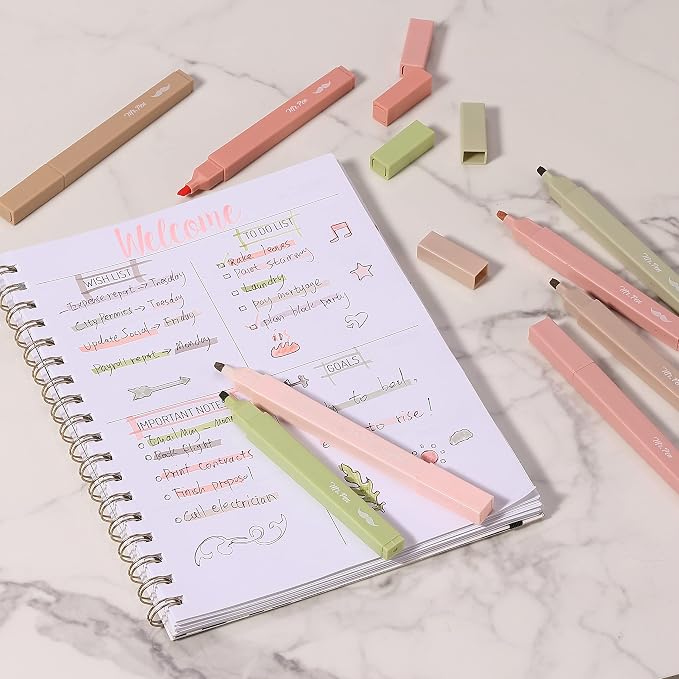 Welcome
WISH LIST
Expense report → Tuesday
City Permits → Tuesday
Update Social → Friday
Payroll report → Monday
TO DO LIST
Rake leaves
Paint stairway
Laundry
pay mortgage
plan block party
IMPORTANT NOTE
Email
Book flight
Print Contracts
Finish Proposal
Call electrician
GOALS
to bed,
to rise!
Mr. Pen
Mr. Pen
Mr. Pen
Mr. Pen
Mr. Pen
Mr. Pen
Mr. Pen
Mr. Pen